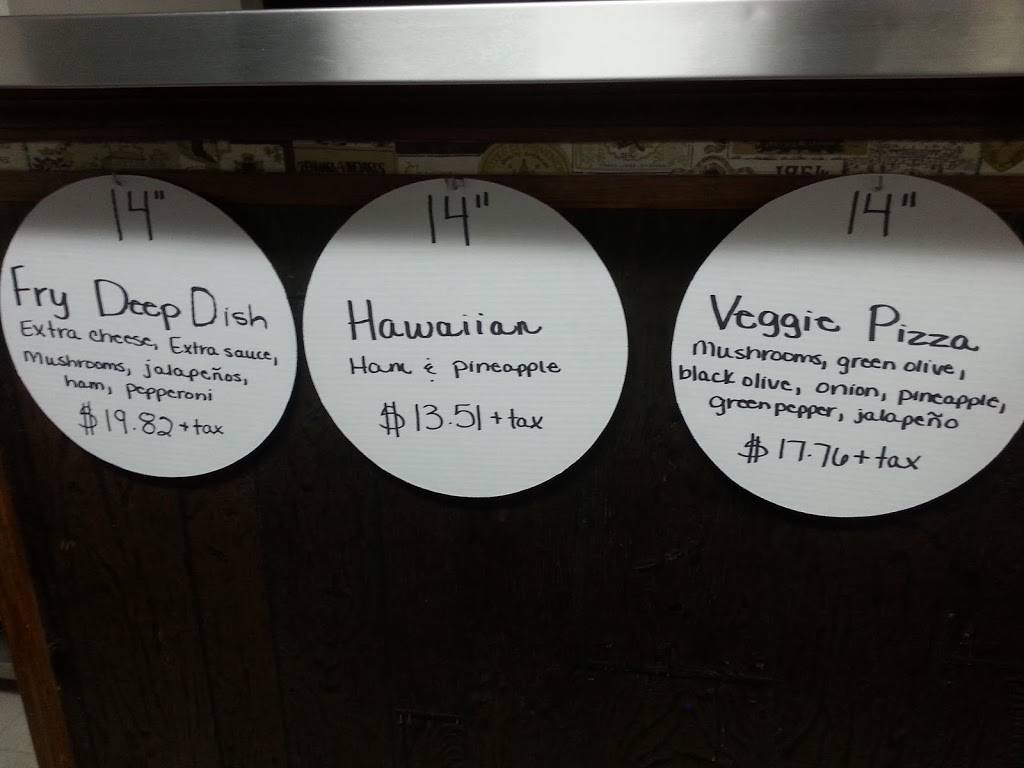 14"
Fry Deep Dish
Extra cheese, Extra sauce,
Mushrooms, jalapeños,
ham, pepperoni
$19.82 + tax
14"
Hawaiian
Ham & pineapple
$13.51 + tax
14"
Veggie Pizza
Mushrooms, green olive,
black olive, onion, pineapple,
green pepper, jalapeño
$17.76 + tax